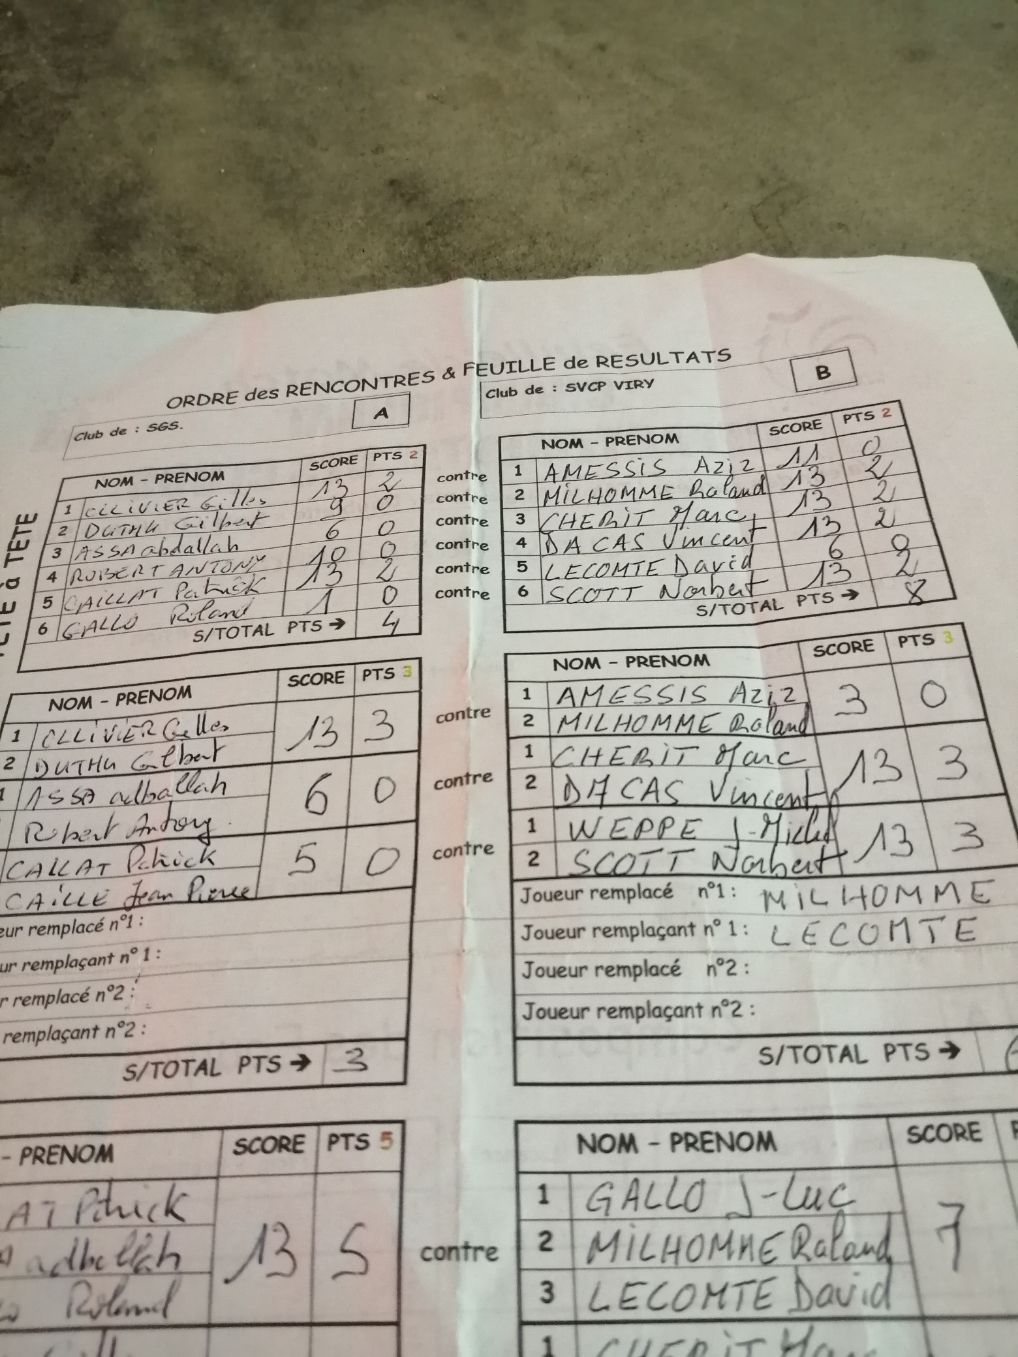 ORDRE des RENCONTRES & FEUILLE de RESULTATS
Club de : SGS. A
Club de : SVCP VIRY B
TETE à TETE
NOM - PRENOM SCORE PTS 2
1 OLLIVIER Gilles 13 2
2 DUTHU Gilbert 9 0
3 ASSA abdallah 6 0
4 ROBERT ANTONY 10 0
5 CAILLAT Patrick 13 2
6 GALLO Roland 1 0
S/TOTAL PTS → 4
contre
contre
contre
contre
contre
contre
NOM - PRENOM SCORE PTS 2
1 AMESSIS Aziz 11 0
2 MILHOMME Roland 13 2
3 CHERIT Marc 13 2
4 DACAS Vincent 13 2
5 LECOMTE David 6 0
6 SCOTT Norbert 13 2
S/TOTAL PTS → 8
NOM - PRENOM SCORE PTS 3
1 OLLIVIER Gilles 13 3
2 DUTHU Gilbert
1 ASSA adballah 6 0
Robert Antony
CALLAT Patrick 5 0
CAILLE Jean Pierre
eur remplacé n°1 :
ur remplaçant n° 1 :
r remplacé n°2 :
remplaçant n°2 :
S/TOTAL PTS → 3
contre
contre
contre
NOM - PRENOM SCORE PTS 3
1 AMESSIS Aziz 3 0
2 MILHOMME Roland
1 CHERIT Marc 13 3
2 DACAS Vincent
1 WEPPE J-Michel 13 3
2 SCOTT Norbert
Joueur remplacé n°1 : MILHOMME
Joueur remplaçant n° 1 : LECOMTE
Joueur remplacé n°2 :
Joueur remplaçant n°2 :
S/TOTAL PTS →
- PRENOM SCORE PTS 5
AT Patrick 13 5
adballah
Roland
contre
NOM - PRENOM SCORE
1 GALLO J-Luc 7
2 MILHOMME Roland
3 LECOMTE David
1 CHERIT Marc